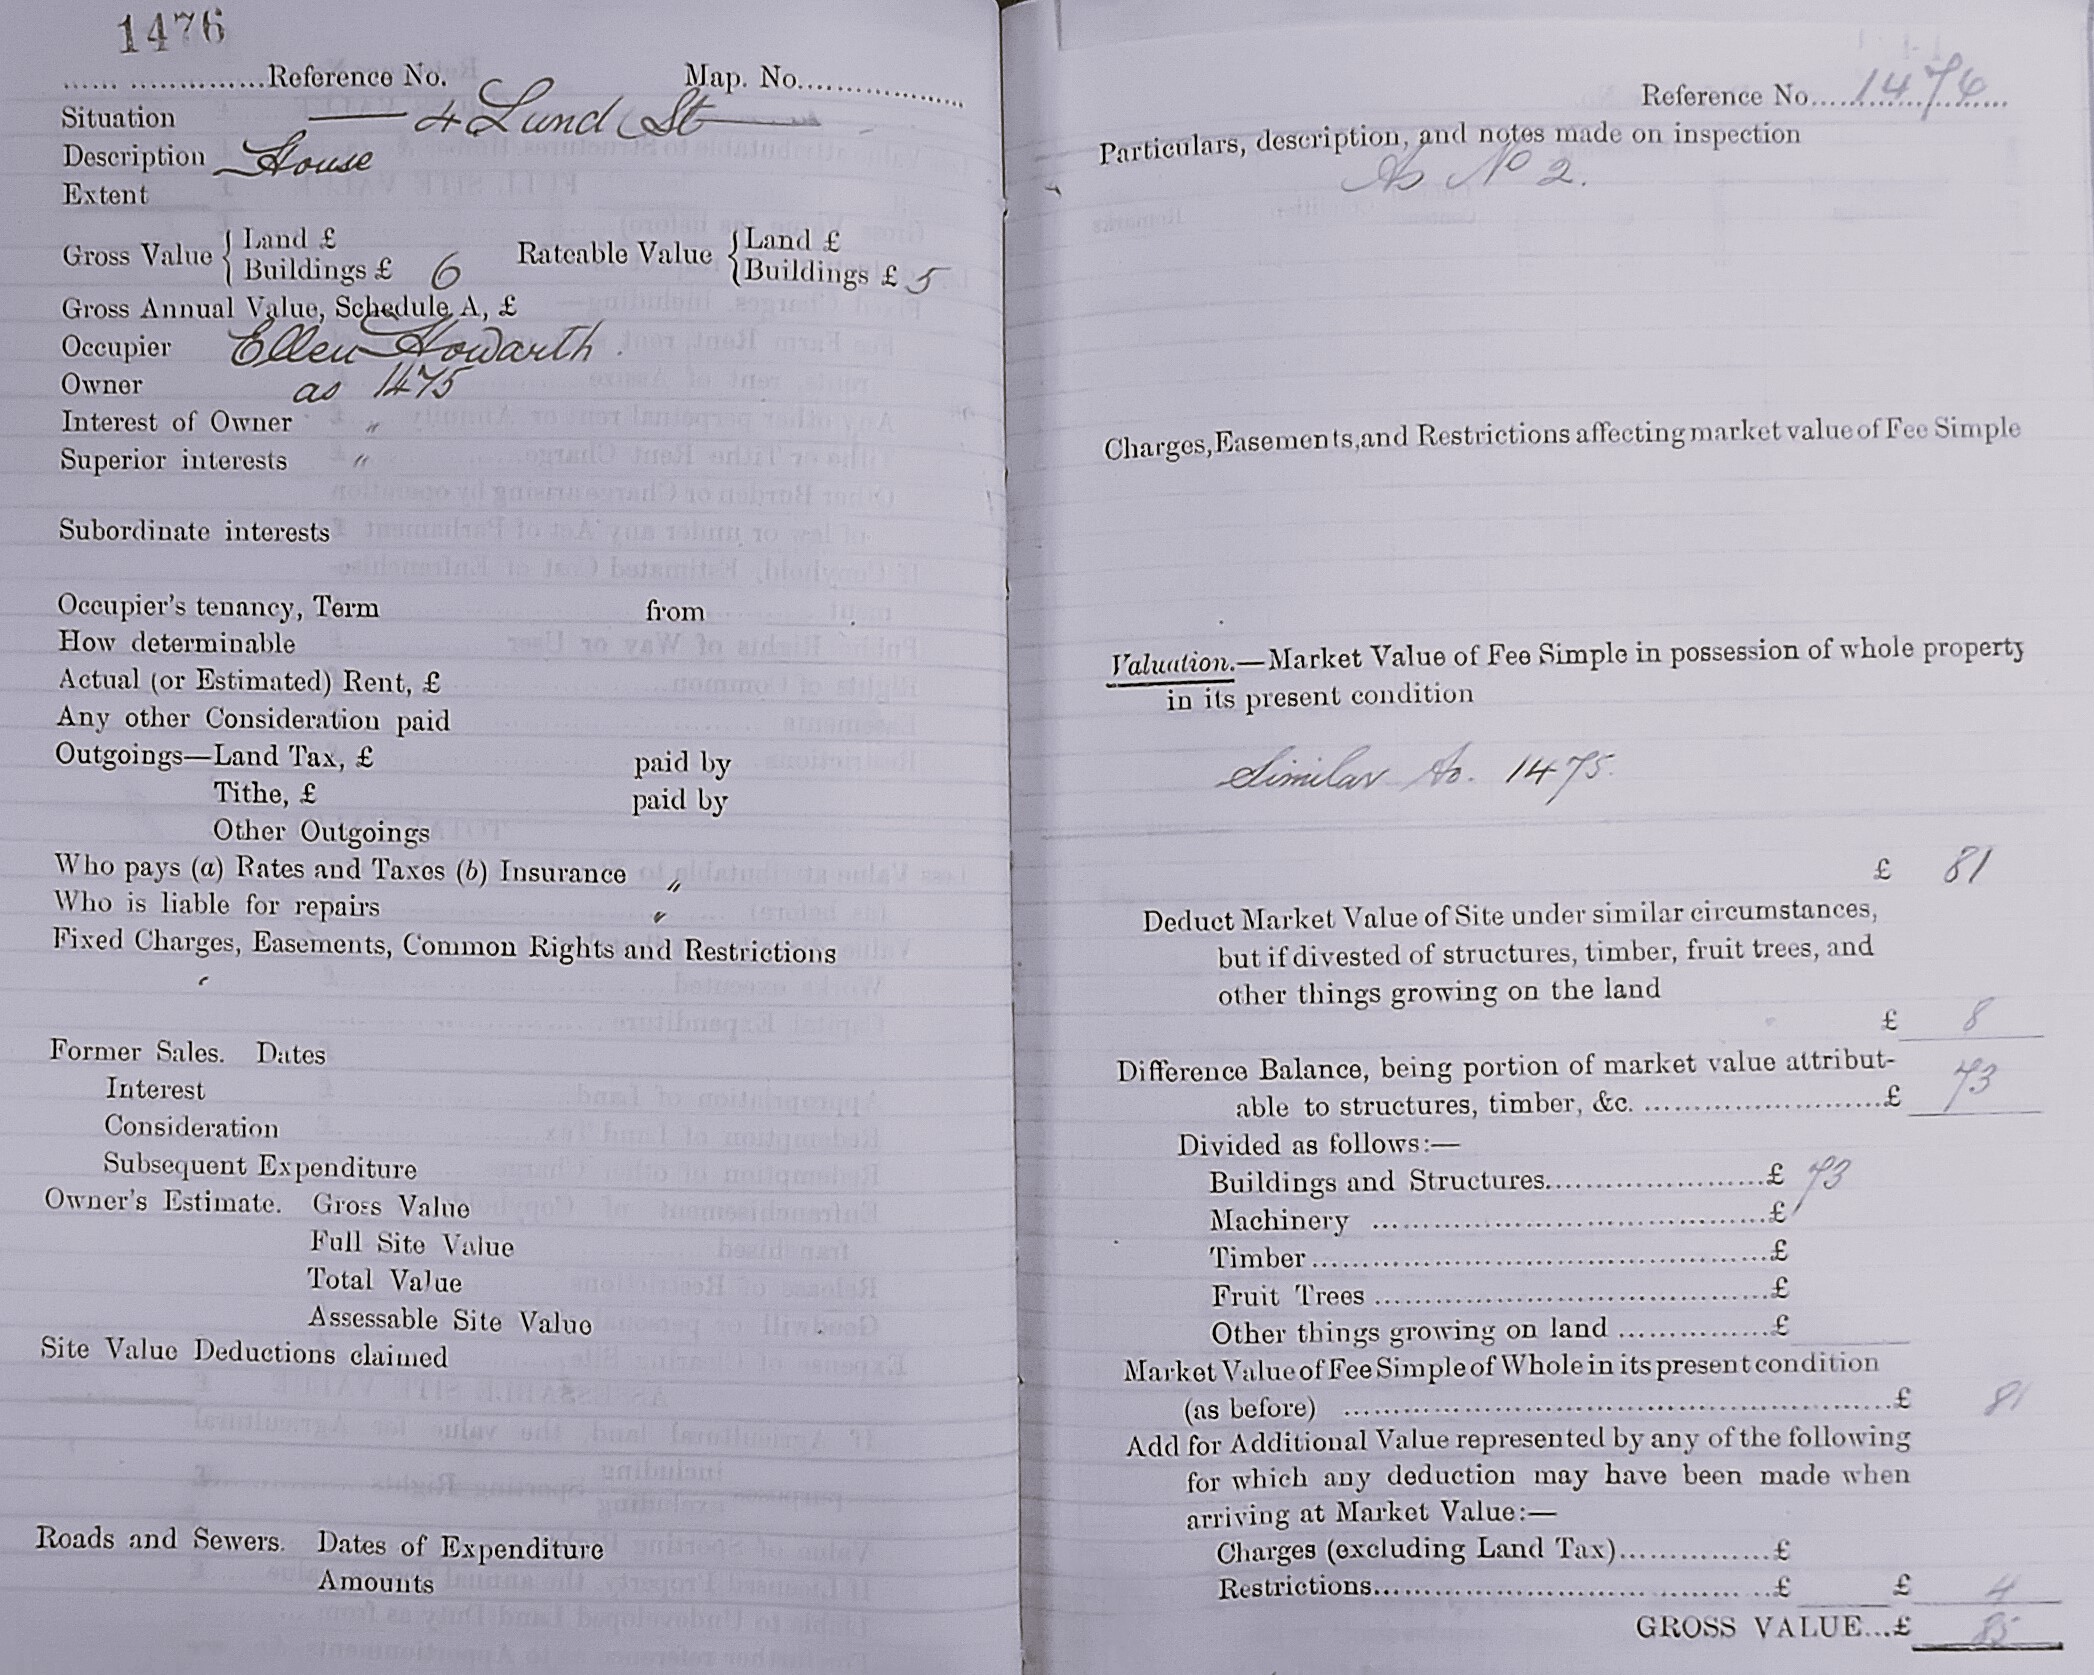 1476
.................Reference No. Map. No..................
Situation 4 Lund St
Description House
Extent
Gross Value { Land £
Buildings £ 6
Rateable Value { Land £
Buildings £ 5
Gross Annual Value, Schedule A, £
Occupier Ellen Howarth.
Owner as 1475
Interest of Owner "
Superior interests "
Subordinate interests
Occupier's tenancy, Term from
How determinable
Actual (or Estimated) Rent, £
Any other Consideration paid
Outgoings—Land Tax, £ paid by
Tithe, £ paid by
Other Outgoings
Who pays (a) Rates and Taxes (b) Insurance "
Who is liable for repairs "
Fixed Charges, Easements, Common Rights and Restrictions
"
Former Sales. Dates
Interest
Consideration
Subsequent Expenditure
Owner's Estimate. Gross Value
Full Site Value
Total Value
Assessable Site Value
Site Value Deductions claimed
Roads and Sewers. Dates of Expenditure
Amounts
Reference No. 1476
Particulars, description, and notes made on inspection
As No 2.
Charges, Easements, and Restrictions affecting market value of Fee Simple
Valuation.—Market Value of Fee Simple in possession of whole property
in its present condition
Similar to. 1475.
£ 81
Deduct Market Value of Site under similar circumstances,
but if divested of structures, timber, fruit trees, and
other things growing on the land
£ 8
Difference Balance, being portion of market value attribut-
able to structures, timber, &c. ........................£ 73
Divided as follows:—
Buildings and Structures......................£ 73
Machinery ........................................£
Timber..............................................£
Fruit Trees ........................................£
Other things growing on land ...............£
Market Value of Fee Simple of Whole in its present condition
(as before) ......................................................£ 81
Add for Additional Value represented by any of the following
for which any deduction may have been made when
arriving at Market Value:—
Charges (excluding Land Tax)...............£
Restrictions.......................................£ £ 4
GROSS VALUE...£ 85